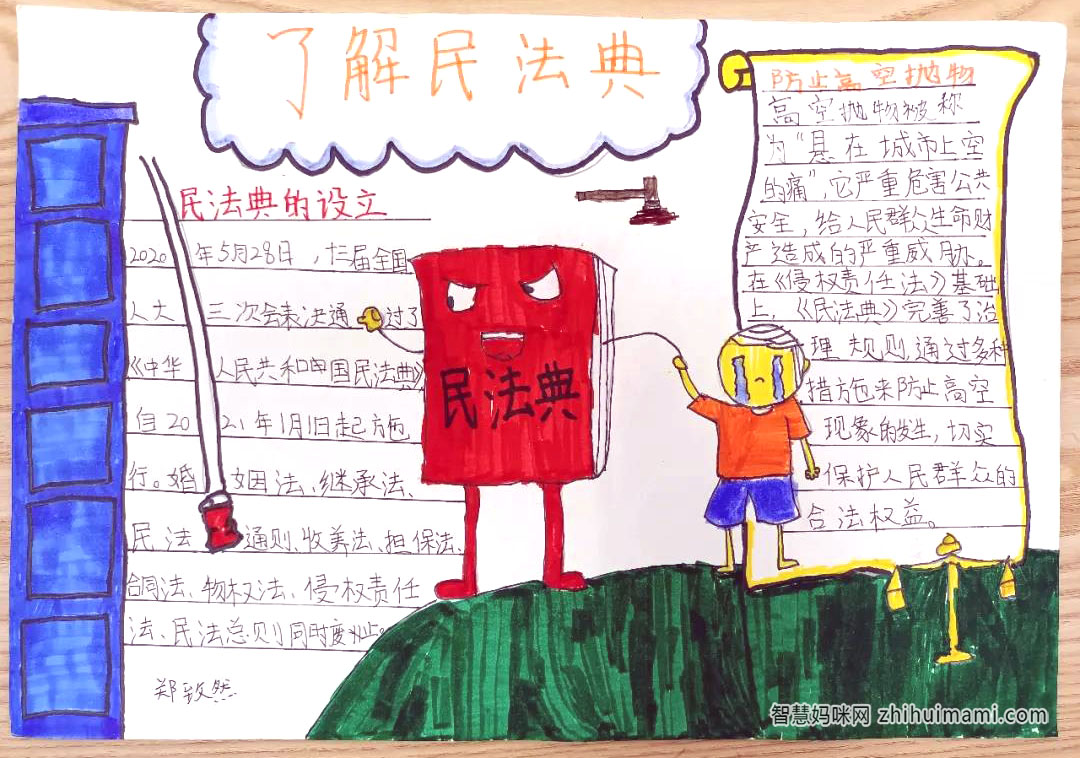 了解民法典
民法典的设立
2020年5月28日，十三届全国
人大三次会表决通过了
《中华人民共和国民法典》
自2021年1月1日起方包
行。婚姻法、继承法、
民法通则、收养法、担保法、
合同法、物权法、侵权责任
法、民法总则同时废止。
郑致然
民法典
防止高空抛物
高空抛物被称
为“悬在城市上空
的痛”，它严重危害公共
安全，给人民群众生命财
产造成的严重威胁。
在《侵权责任法》基础
上，《民法典》完善了治
理规则，通过多种
措方包来防止高空
现象的发生，切实
保护人民群众的
合法权益。
智慧妈咪网 zhihuimami.com